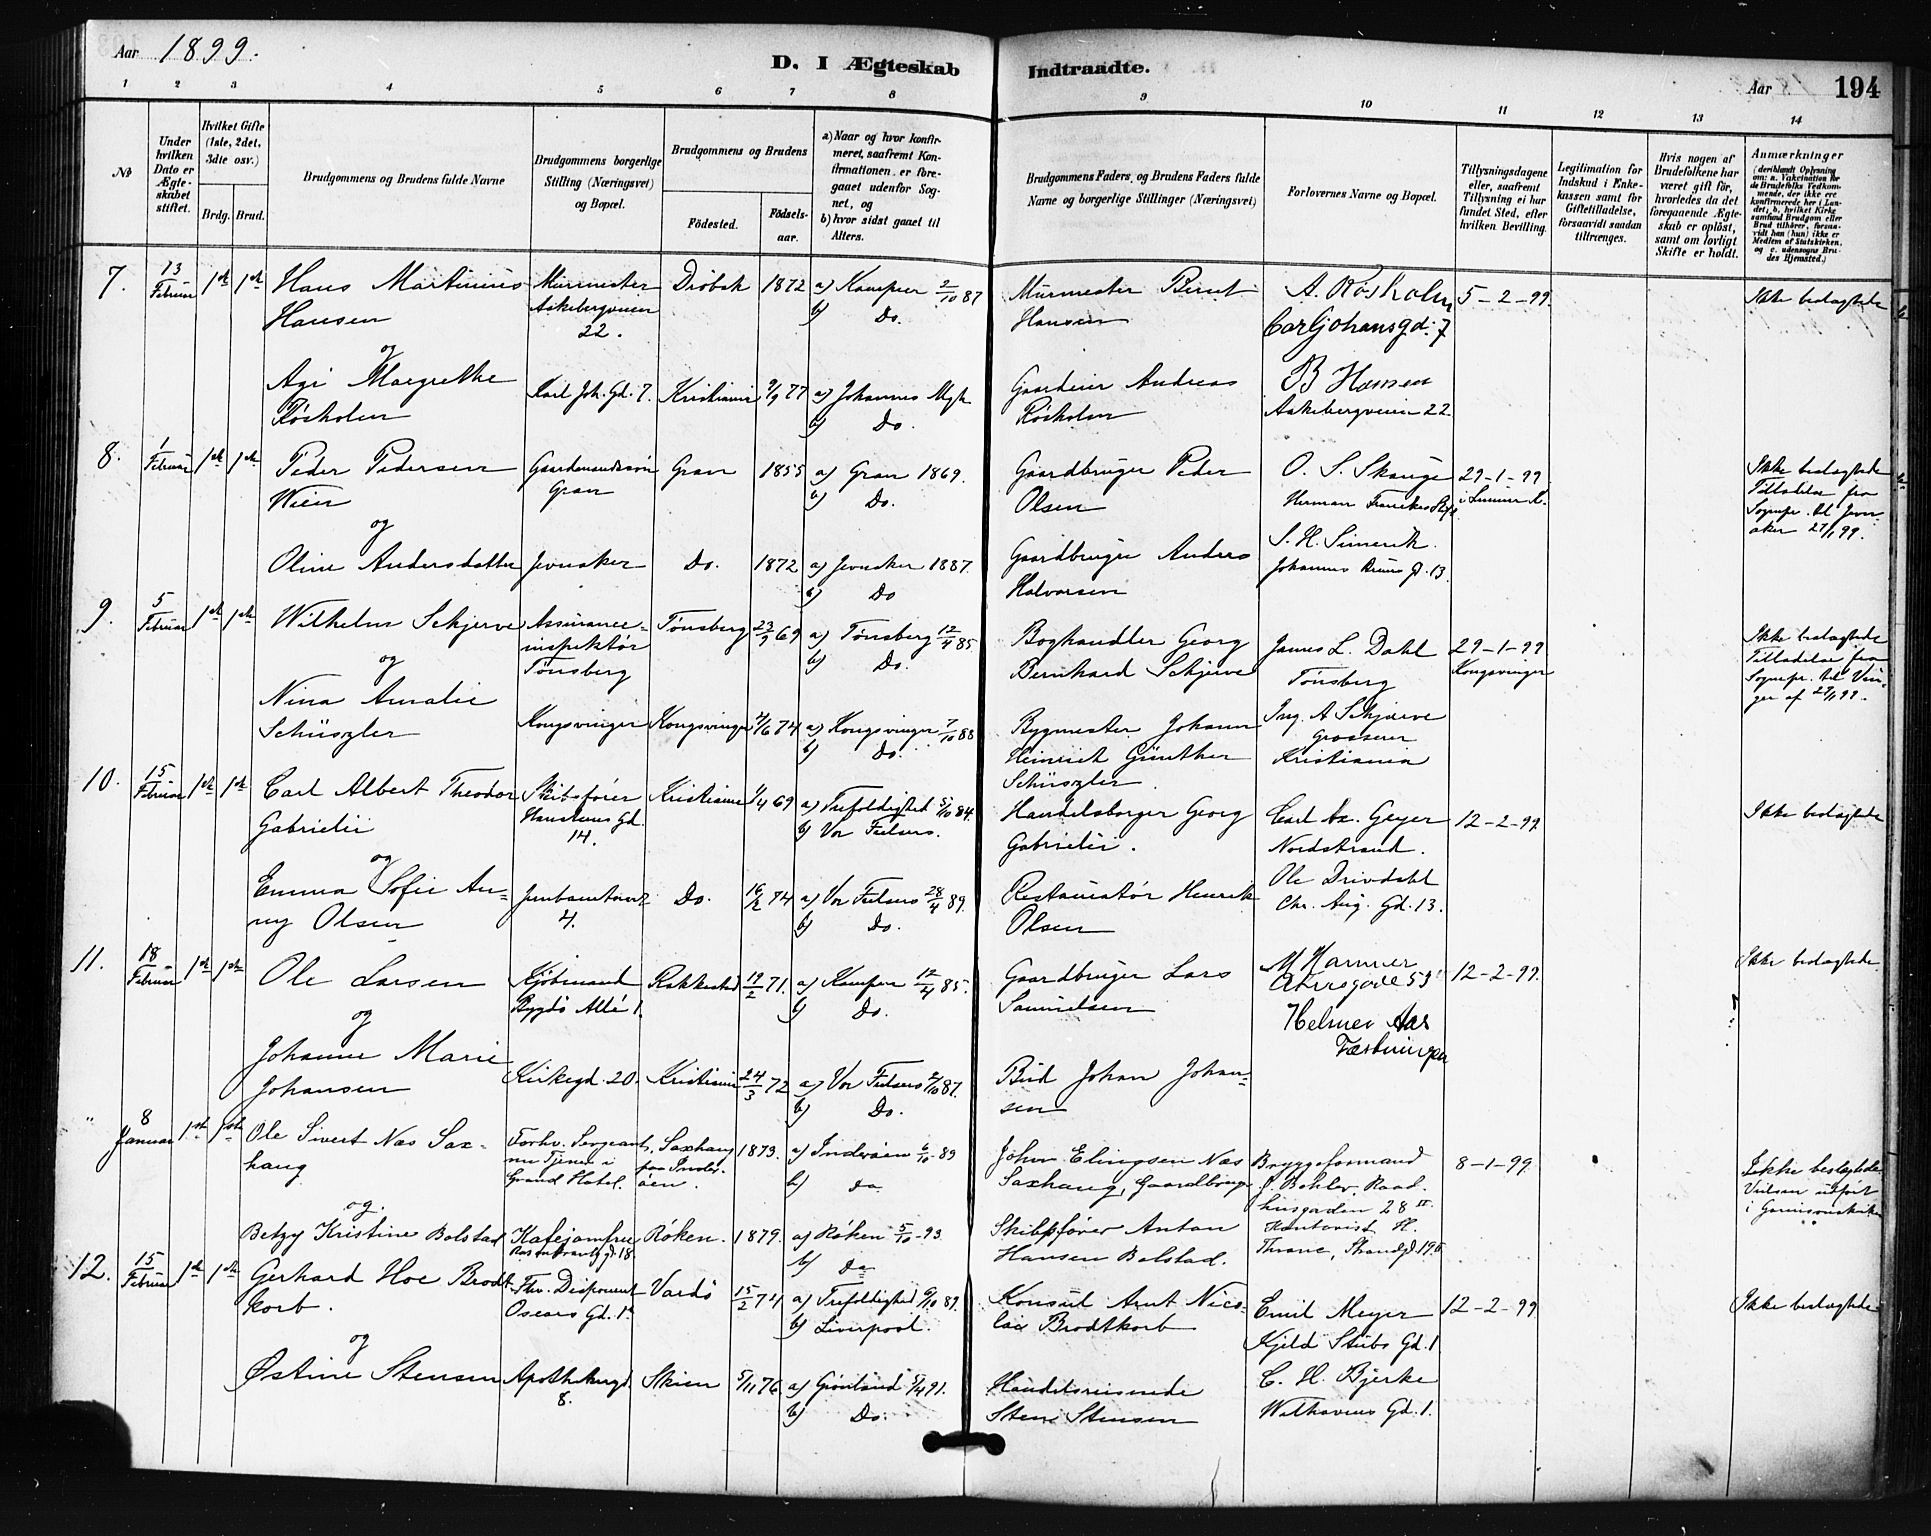 Aar 1899.
D. I Ægteskab Indtraadte.
Aar 194
1 2 3 4 5 6 7 8 9 10 11 12 13 14
No
Under hvilken Dato er Ægteskabet stiftet.
Hvilket Gifte (1ste, 2det, 3die osv.)
Brdg. Brud.
Brudgommens og Brudens fulde Navne
Brudgommens borgerlige Stilling (Næringsvei) og Bopæl.
Brudgommens og Brudens
Fødested. Fødselsaar.
a) Naar og hvor konfirmeret, saafremt Konfirmationen er foregaaet udenfor Sognet, og
b) hvor sidst gaaet til Alters.
Brudgommens Faders, og Brudens Faders fulde Navne og borgerlige Stillinger (Næringsvei)
Forlovernes Navne og Bopæl.
Tillysningsdagene eller, saafremt Tillysning ei har fundet Sted, efter hvilken Bevilling.
Legitimation for Indskud i Enkekassen samt for Giftetilladelse, forsaavidt saadan tiltrænges.
Hvis nogen af Brudefolkene har været gift før, hvorledes da det foregaaende Ægteskab er opløst, samt om lovligt Skifte er holdt.
Anmærkninger
7. 13 Februar 1ste 1ste
Hans Martinius Hansen
Murmester Aakebergveien 22.
Drøbak 1872
a) Kampen 2/10 87
b) Do.
Murmester Bernt Hansen
A. Røsholm
Carl Johans gd. 7
5-2-99.
Ikke beslægtede
og
Agi Margrethe Røsholm
Karl Joh. Gd. 7. Kristiania 9/9 77
a) Johannes Mgh
b) Do.
Gaardeier Andreas Røsholm
B Hansen
Aakebergveien 22
8. 1 Februar 1ste 1ste
Peder Pedersen Wien
Gaardmandssøn Gran
Gran 1855
a) Gran 1869.
b) Do.
Gaardbruger Peder Olsen
O. S. Skauge
29-1-99
Ikke beslægtede
Tilladelse fra Sognepr. til Jevnaker 27/1 99.
og
Oline Andersdatter
Jevnaker Do. 1872
a) Jevnaker 1887.
b) Do
Gaardbruger Anders Halvorsen
S. H. Simerik.
Johannes Bruns g. 13.
9. 5 Februar 1ste 1ste
Wilhelm Schjerve
Assuranceinspektør Tønsberg
Tønsberg 23/9 69
a) Tønsberg 12/4 85
b) Do.
Boghandler Georg Bernhard Schjerve
James L. Dahl Tønsberg
29-1-99 Kongsvinger
Ikke beslægtede
Tilladelse fra Sognepr. til Vinger af 27/1 99.
og
Nina Amalie Schüszler
Kongsvinger Kongsvinger 2/6 74
a) Kongsvinger 7/10 88
b) Do.
Bygmester Johann Heinrich Günther Schüszler.
Ing. A Schjerve
Grosserer Kristiania
10. 15 Februar 1ste 1ste
Carl Albert Theodor Gabrielii
Skibsfører Hausmns Gd. 14.
Kristiania 1/4 69
a) Trefoldighed 5/10 84.
b) Vor Frelsers.
Handelsborger Georg Gabrielii.
Carl Ax. Geyer Nordstrand.
12-2-99
Ikke beslægtede
og
Emma Sofie Anny Olsen
Jernbanetorvet 4. Do. 16/2 74
a) Vor Frelsers 28/4 89.
b) Do.
Restauratør Henrik Olsen
Ole Drivdahl
Chr. Aug. Gd. 13.
11. 18 Februar 1ste 1ste
Ole Larsen
Kjøbmand Bygdø Allé 1.
Rakkestad 19/2 71.
a) Kampen 12/4 85.
b) Do.
Gaardbruger Lars Samuelsen
M Hammer
12-2-99.
Ikke beslægtede.
og
Johanne Marie Johansen
Kirkegd. 20. Kristiania 24/3 72
a) Vor Frelsers 2/10 87.
b) Do.
Bud Johan Johansen
Helmer Aas
" 8 Januar 1ste 1ste
Ole Sivert Næs Saxhaug
Forhv. Sergeant, nu Tjener i Grand Hotel.
Saxhaug paa Inderøen. 1873.
a) Inderøen 6/10-89
b) do
Johan Elingsen Næs Saxhaug, Gaardbruger
Bryggeformand J. Bohler, Raadhusgaden 28 II.
8-1-99
Ikke beslægtede.
Vielsen udført i Garnisonskirken
og.
Betzy Kristine Bolstad
Kafejomfru Rosenkrantzgd 18
Røken. 1879.
a) Røken 5/10-93
b) Do
Skibsfører Anton Hansen Bolstad.
Kontorist H. Thrane, Strandgd. 19b
12. 15 Februar 1ste 1ste
Gerhard Hoe Brodtkorb.
Fhv. Disponent Oscars Gd. 1a
Vardø 15/2 74
a) Trefoldighed 6/10 89.
b) Liverpool.
Konsul Arnt Nicolai Brodtkorb
Emil Meyer Kjeld Stubs Gd. 1
12-2-99
Ikke beslægtede
og
Østine Stensen
Apothekergd 8.
Skien 5/11 76
a) Grønland 5/4 91.
b) Do.
Handelsreisende Sten Stensen
C. H. Bjerke
Welhavens Gd. 1.